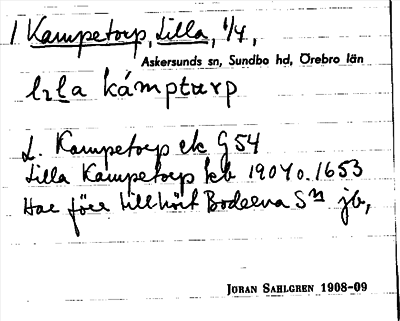 1 Kampetorp, Lilla, 1/4,
Askersunds sn, Sundbo hd, Örebro län
lɩla kámptɯrp
L. Kampetorp ek G 54
Lilla Kampetorp kb 1904 o. 1653
Har förr tillhört Boderna Sn jb,
JÖRAN SAHLGREN 1908-09